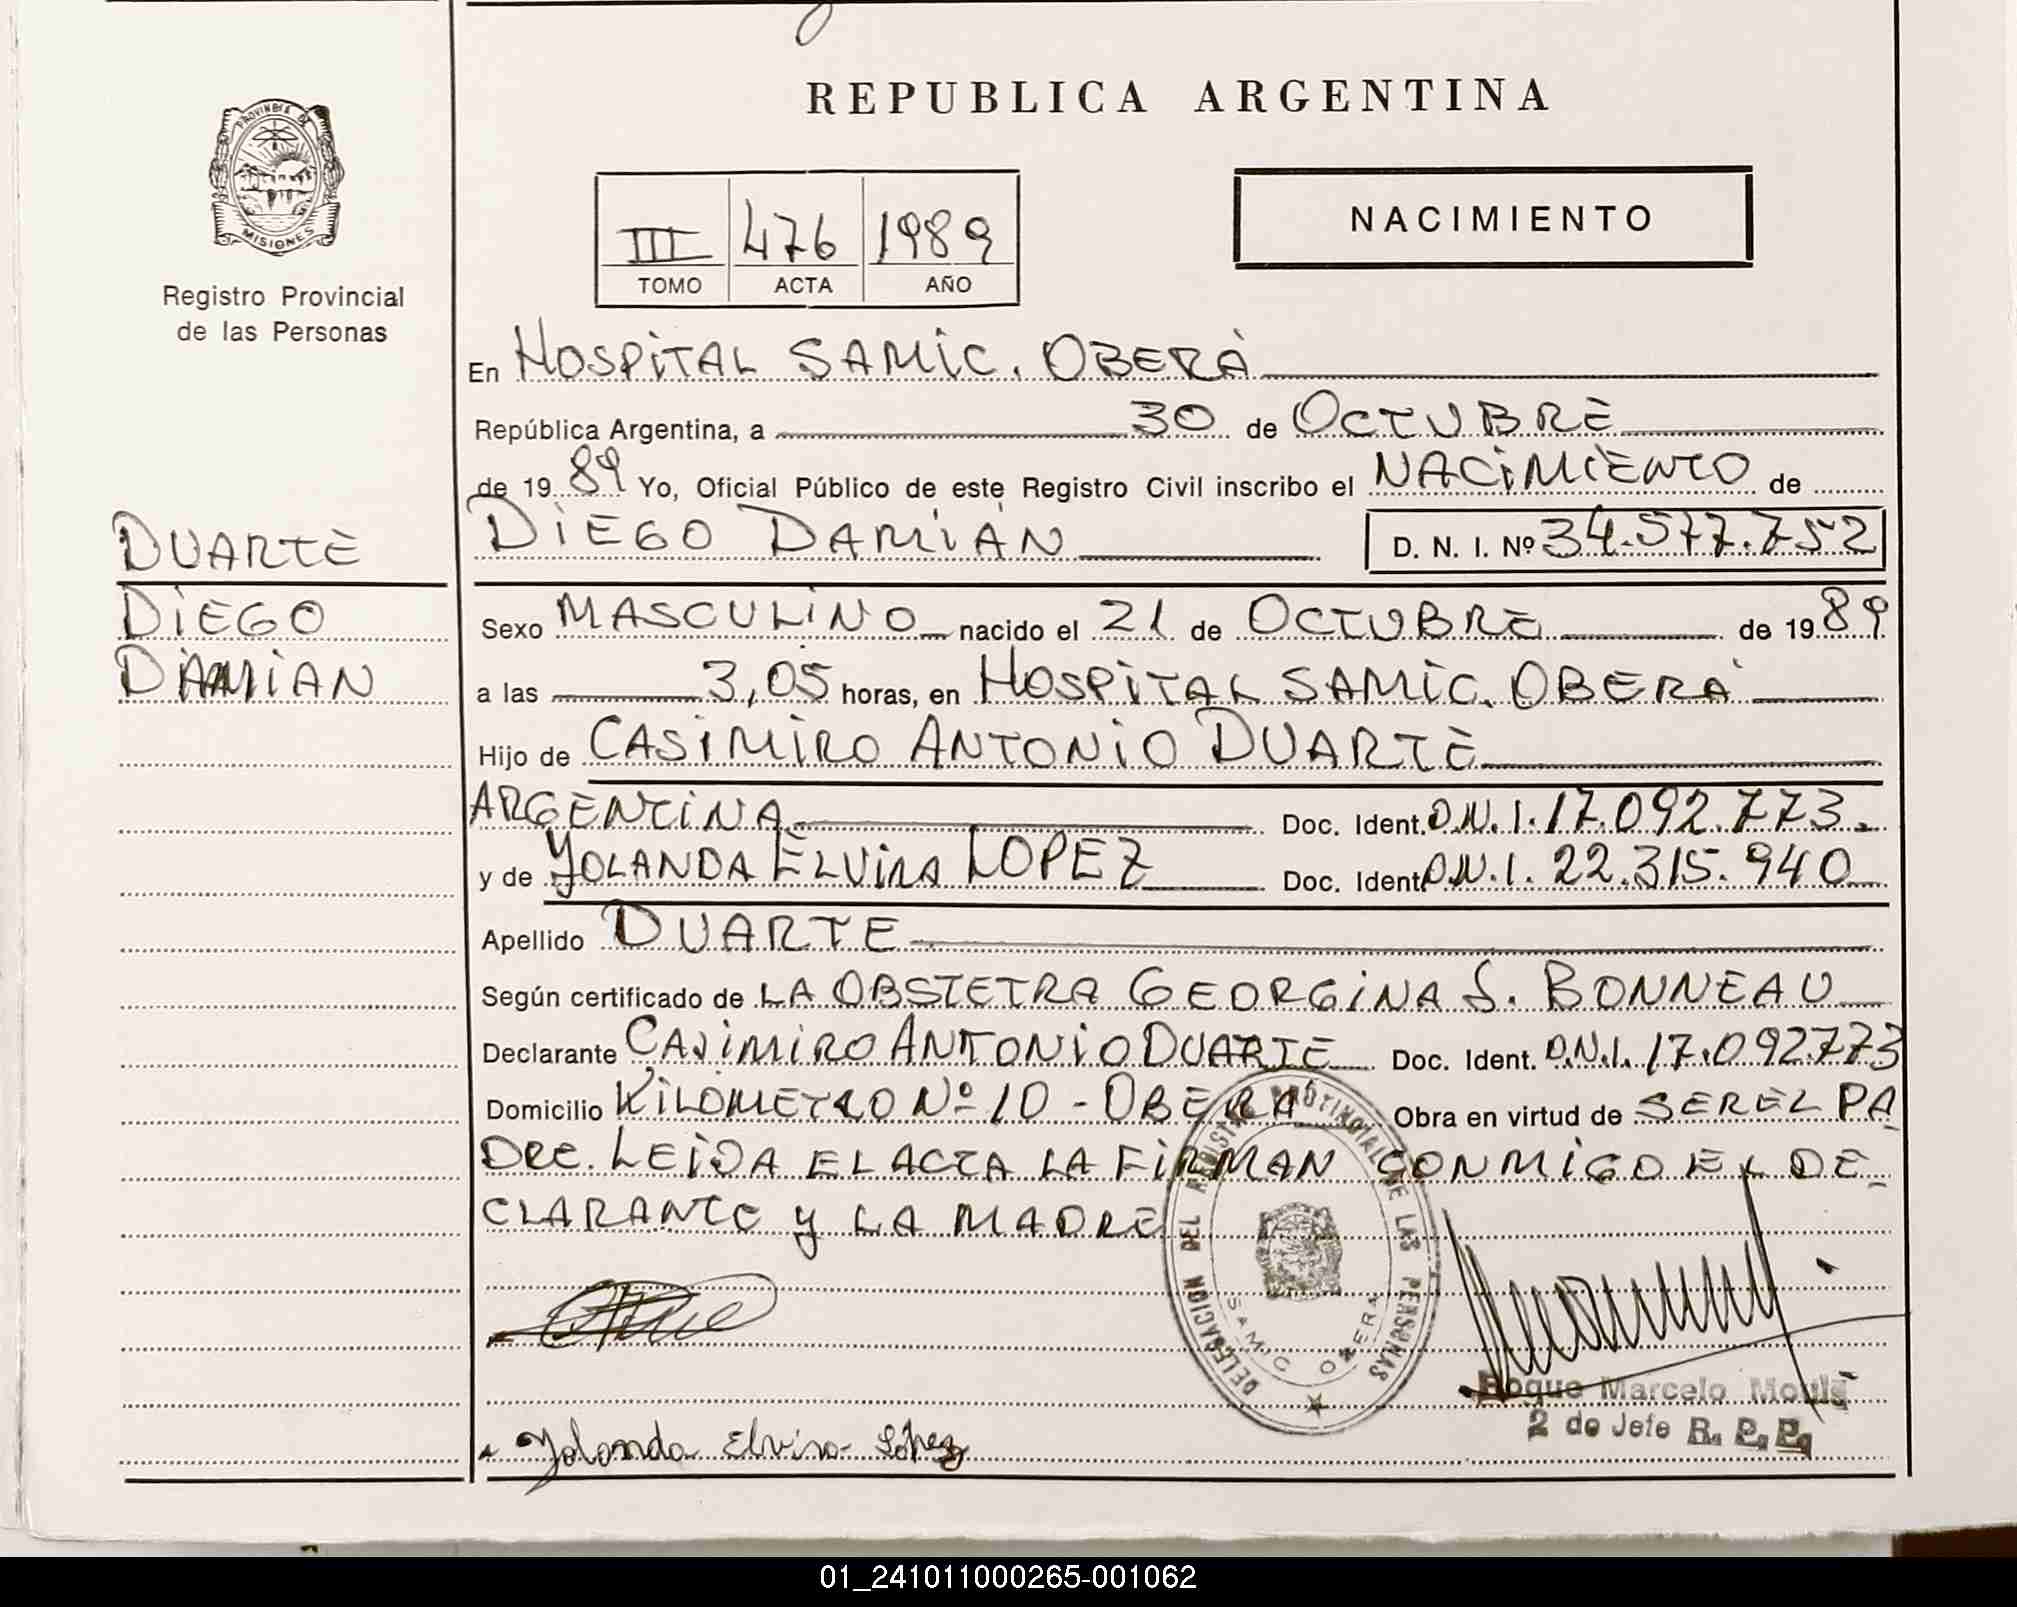 REPUBLICA ARGENTINA
PROVINCIA DE
MISIONES
Registro Provincial
de las Personas
III 476 1989
TOMO ACTA AÑO
NACIMIENTO
En HOSPITAL SAMIC. OBERÁ
República Argentina, a 30 de OCTUBRE
de 1989 Yo, Oficial Público de este Registro Civil inscribo el NACIMIENTO de
DIEGO DAMIÁN D. N. I. Nº 34.577.752
DUARTE
DIEGO
DAMIAN
Sexo MASCULINO nacido el 21 de OCTUBRE de 1989
a las 3,05 horas, en HOSPITAL SAMIC. OBERÁ
Hijo de CASIMIRO ANTONIO DUARTE
ARGENTINA Doc. Ident. D.N.I. 17.092.773.
y de YOLANDA ELVIRA LOPEZ Doc. Ident. D.N.I. 22.315.940
Apellido DUARTE
Según certificado de LA OBSTETRA GEORGINA S. BONNEAU
Declarante CASIMIRO ANTONIO DUARTE Doc. Ident. D.N.I. 17.092.773
Domicilio KILOMETRO Nº 10 - OBERA Obra en virtud de SER EL PA
DRE. LEIDA EL ACTA LA FIRMAN CONMIGO EL DE_
CLARANTE y LA MADRE
DELEGACION DEL REGISTRO PROVINCIAL DE LAS PERSONAS
SAMIC OBERA
Roque Marcelo
2 do Jefe R. P. P.
Yolanda Elvira López
01_241011000265-001062